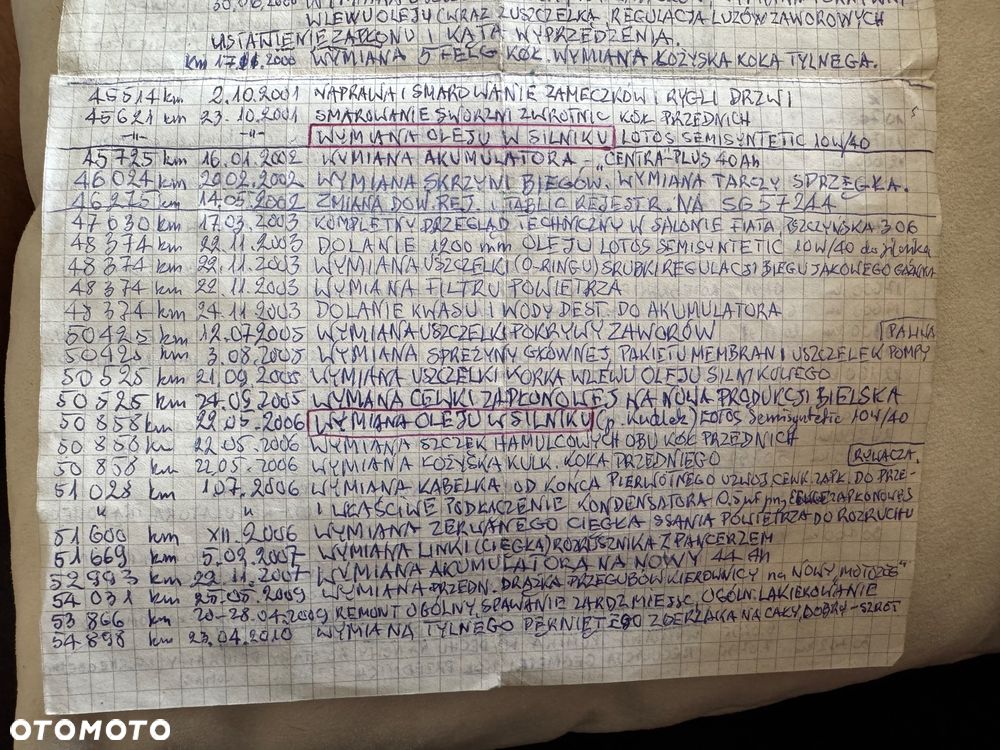 WLEWU OLEJU (WRAZ Z USZCZELKĄ, REGULACJA LUZÓW ZAWOROWYCH
USTAWIENIE ZAPŁONU I KĄTA WYPRZEDZENIA.
WYMIANA 5 FELG KÓŁ. WYMIANA ŁOŻYSKA KOŁA TYLNEGO.
45514 km 2.10.2001 NAPRAWA I SMAROWANIE ZAMECZKÓW I RYGLI DRZWI
45621 km 23.10.2001 SMAROWANIE SWORZNI ZWROTNIC KÓŁ PRZEDNICH
-"- -"- WYMIANA OLEJU W SILNIKU LOTOS SEMISYNTETIC 10W/40
45725 km 16.01.2002 WYMIANA AKUMULATORA - "CENTRA" PLUS 40Ah
46024 km 20.02.2002 WYMIANA SKRZYNI BIEGÓW. WYMIANA TARCZY SPRZĘGŁA.
46275 km 14.05.2002 ZMIANA DOW. REJ. I TABLIC REJESTR. NA SG 57244
47030 km 17.03.2003 KOMPLETNY PRZEGLĄD TECHNICZNY W SALONIE FIATA, PSZCZYŃSKA 306
48374 km 22.11.2003 DOLANIE 1200 mm OLEJU LOTOS SEMISYNTETIC 10W/40 do silnika
48374 km 22.11.2003 WYMIANA USZCZELKI (O-RINGU) ŚRUBKI REGULACJI BIEGU JAŁOWEGO GAŹNIKA
48374 km 22.11.2003 WYMIANA FILTRU POWIETRZA
48374 km 24.11.2003 DOLANIE KWASU I WODY DEST. DO AKUMULATORA
50425 km 12.07.2005 WYMIANA USZCZELKI POKRYWY ZAWORÓW
PALIWA
50425 km 3.08.2005 WYMIANA SPRĘŻYNY GŁÓWNEJ, PAKIETU MEMBRAN I USZCZELEK POMPY
50525 km 21.09.2005 WYMIANA USZCZELKI KORKA WLEWU OLEJU SILNIKOWEGO
50525 km 24.09.2005 WYMIANA CEWKI ZAPŁONOWEJ NA NOWĄ PRODUKCJI BIELSKA
50858 km 22.05.2006 WYMIANA OLEJU W SILNIKU LOTOS Semisyntetic 10W/40
50858 km 22.05.2006 WYMIANA SZCZĘK HAMULCOWYCH OBU KÓŁ PRZEDNICH
50858 km 22.05.2006 WYMIANA ŁOŻYSKA KULK. KOŁA PRZEDNIEGO
RYWACZA
51028 km 1.07.2006 WYMIANA KABELKA OD KOŃCA PIERWOTNEGO UZWOJ. CEWK. ZAPŁ. DO PRZE-
" " I WŁAŚCIWE PODŁĄCZENIE KONDENSATORA ZAPŁONOWEJ
51600 km XII.2006 WYMIANA ZERWANEGO CIĘGŁA SSANIA POWIETRZA DO ROZRUCHU
51669 km 5.02.2007 WYMIANA LINKI (CIĘGŁA) ROZRUSZNIKA Z PANCERZEM
52993 km 22.11.2007 WYMIANA AKUMULATORA NA NOWY 44 Ah
54031 km 25.05.2009 WYMIANA PRZEDN. DRĄŻKA PRZEGUBÓW KIEROWNICY na NOWY
53866 km 20-28.04.2009 REMONT OGÓLNY, SPAWANIE ZARDZ. MIEJSC, OGÓLN. LAKIEROWANIE
54898 km 23.04.2010 WYMIANA TYLNEGO PĘKNIĘTEGO ZDERZAKA NA CAŁY, DOBRY - SZROT
OTOMOTO